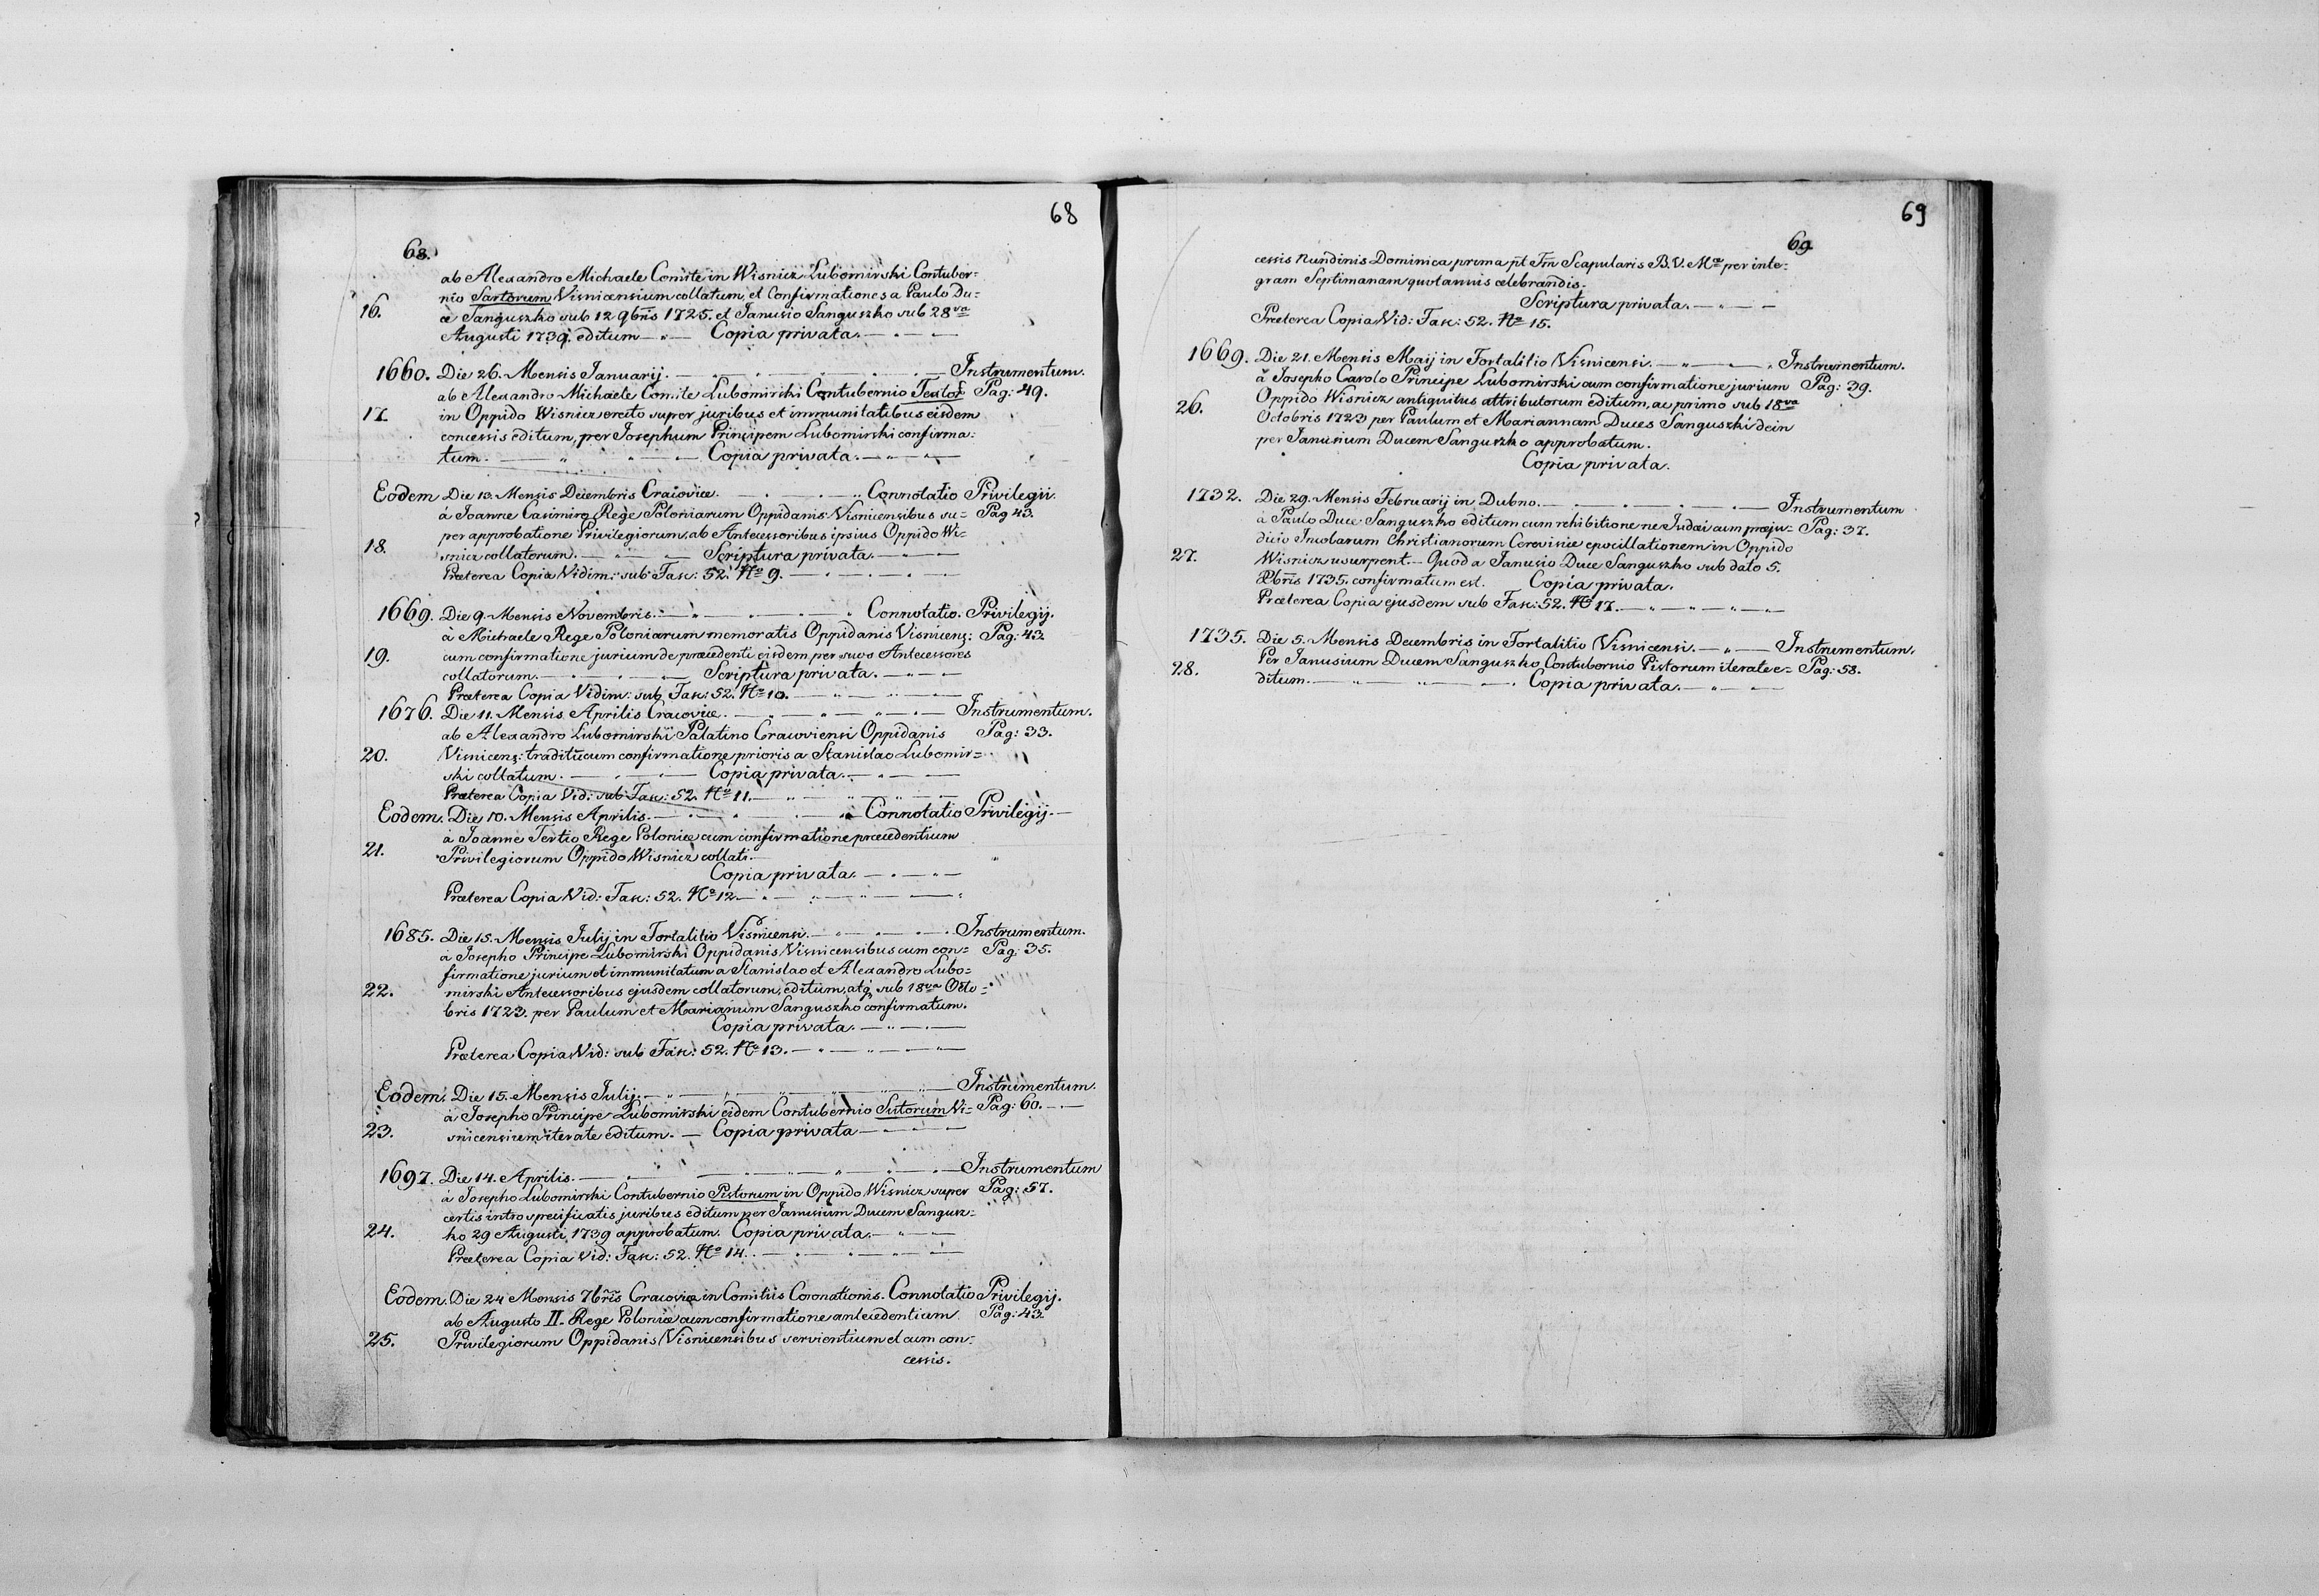 68
68.
ab Alexandro Michaele Comite in Wisnicz Lubomirski Contuber=
nio Sartorum Visnicensium collatum, et Confirmationes a Paulo Du=
16. ce Sanguszko sub 12 9bris 1725. et Janusio Sanguszko sub 28va
Augusti 1739. editum — Copia privata. —
1660. Die 26. Mensis Januarij. — Instrumentum.
ab Alexandro Michaele Comite Lubomirski Contubernio Textor Pag: 49.
17. in Oppido Wisnicz erecto super juribus et immunitatibus eisdem
concessis editum, per Josephum Principem Lubomirski confirma=
tum. — Copia privata. —
Eodem Die 13. Mensis Decembris Cracoviæ. — Connotatio Privilegii.
à Joanne Casimiro Rege Poloniarum Oppidanis Visnicensibus su= Pag 43.
per approbatione Privilegiorum, ab Antecessoribus ipsius Oppido Wi=
18. snicz collatorum. — Scriptura privata. —
Præterea Copia Vidim: sub Fasc: 52. No 9. —
1669. Die 9. Mensis Novembris. — Connotatio Privilegij.
à Michaele Rege Poloniarum memoratis Oppidanis Visnicens: Pag: 43.
19. cum confirmatione jurium de præcedenti eisdem per suos Antecessores
collatorum. — Scriptura privata. —
Præterea Copia Vidim: sub Fasc: 52. No 10. —
1676. Die 11. Mensis Aprilis Cracoviæ. — Instrumentum.
ab Alexandro Lubomirski Palatino Cracoviensi Oppidanis Pag: 33.
20. Visnicens: traditum cum confirmatione prioris a Stanislao Lubomir=
ski collatum. — Copia privata. —
Præterea Copia Vid: sub Fasc: 52. No 11. —
Eodem. Die 10. Mensis Aprilis. — Connotatio Privilegij. —
à Joanne Tertio Rege Poloniæ cum confirmatione præcedentium
21. Privilegiorum Oppido Wisnicz collati. —
Copia privata. —
Præterea Copia Vid: Fasc: 52. No 12 —
1685. Die 15. Mensis Julij in Fortalitio Visnicensi. — Instrumentum.
a Josepho Principe Lubomirski Oppidanis Visnicensibus cum con= Pag: 35.
firmatione jurium et immunitatum a Stanislao et Alexandro Lubo=
22. mirski Antecessoribus ejusdem collatorum, editum, atq sub 18va Octo=
bris 1723. per Paulum et Marianum Sanguszko confirmatum.
Copia privata. —
Præterea Copia Vid: sub Fasc: 52. No 13. —
Eodem. Die 15. Mensis Julij. — Instrumentum.
à Josepho Principe Lubomirski eidem Contubernio Sutorum Vi= Pag: 60. —
23. snicensium iterate editum. — Copia privata —
1697. Die 14. Aprilis. — Instrumentum
à Josepho Lubomirski Contubernio Pistorum in Oppido Wisnicz super Pag: 57.
certis intro specificatis juribus editum per Janusium Ducem Sangusz=
24. ko 29 Augusti 1739 approbatum. Copia privata. —
Præterea Copia Vid: Fasc: 52. No 14. —
Eodem. Die 24 Mensis 7bris Cracoviæ in Comitiis Coronationis. Connotatio Privilegij.
ab Augusto II. Rege Poloniæ cum confirmatione antecedentium Pag: 43.
25. Privilegiorum Oppidanis Visnicensibus servientium et cum con=
cessis.
69
69
cessis Nundinis Dominica prima pt Fm Scapularis B. V. Mæ per inte=
gram Septimanam quotannis celebrandis.
Scriptura privata. —
Præterea Copia Vid: Fasc: 52. No 15.
1669. Die 21. Mensis Maij in Fortalitio Visnicensi. — Instrumentum.
à Josepho Carolo Principe Lubomirski cum confirmatione jurium Pag: 39.
26. Oppido Wisnicz antiquitus attributorum editum, ac primo sub 18va
Octobris 1723 per Paulum et Mariannam Duces Sanguszki dein
per Janusium Ducem Sanguszko approbatum.
Copia privata.
1732. Die 29. Mensis Februarij in Dubno. — Instrumentum
à Paulo Duce Sanguszko editum cum rehibitione ne Judæi cum præju= Pag: 37.
dicio Incolarum Christianorum Cerevisiæ epocillationem in Oppido
27. Wisnicz usurpent. — Quod a Janusio Duce Sanguszko sub dato 5.
Xbris 1735. confirmatum est. Copia privata.
Præterea Copia ejusdem sub Fasc: 52. No 17. —
1735. Die 5. Mensis Decembris in Fortalitio Visnicensi. — Instrumentum.
28. Per Janusium Ducem Sanguszko Contubernio Pistorum iterate e= Pag: 58.
ditum. — Copia privata. —